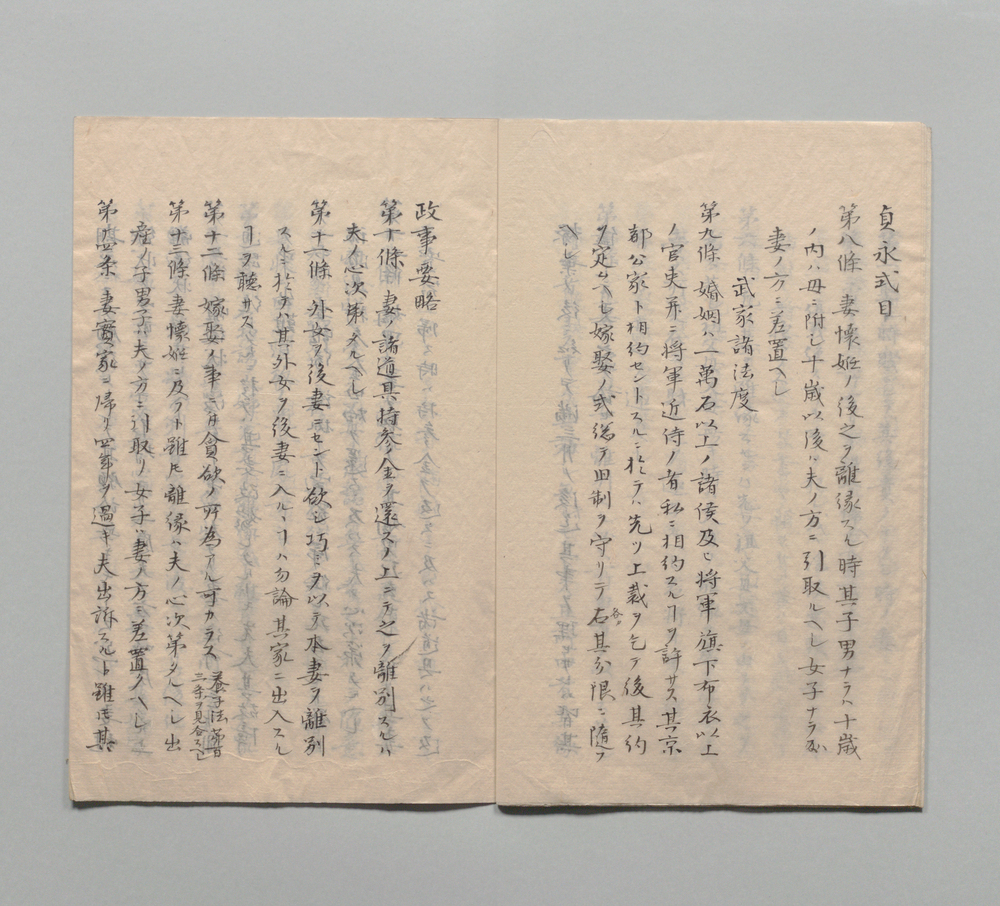 貞永式目
第八條 妻懷妊ノ後之ヲ離縁スル時其子男ナラハ十歳
ノ内ハ母ニ附シ十歳以後ハ夫ノ方ニ引取ルヘシ女子ナラハ
妻ノ方ニ差置ヘシ
武家諸法度
第九條 婚姻ハ一萬石以上ノ諸侯及ヒ将軍旗下布衣以上
ノ官吏并ニ将軍近侍ノ者私ニ相約スルヿヲ許サス其京
都公家ト相約セントスルニ於テハ先ツ上裁ヲ乞テ後其約
ヲ定ムヘシ嫁娶ノ式総テ旧制ヲ守リテ各其分限ニ随フ
ヘシ
政事要略
第十條 妻ノ諸道具持参金ヲ還スノ上ニテ之ヲ離別スルハ
夫ノ心次第タルヘシ
第十一條 外女ヲ後妻ニセント欲シ巧ヲ以テ本妻ヲ離別
スルニ於テハ其外女ヲ後妻ニ入ルヽヿハ勿論其家ニ出入スル
ヿヲ聴サス
第十二條 嫁娶ノ事ニ付貪欲ノ所為アル可カラス 養子法第
三条ヲ見合スヘシ
第十三條 妻懷妊ニ及フト雖𪜈離縁ハ夫ノ心次第タルヘシ出
産ノ子男子ハ夫ノ方ニ引取リ女子ハ妻ノ方ニ差置クヘシ
第十四条 妻實家ニ帰リ四年ヲ過キ夫出訴スルト雖𪜈其